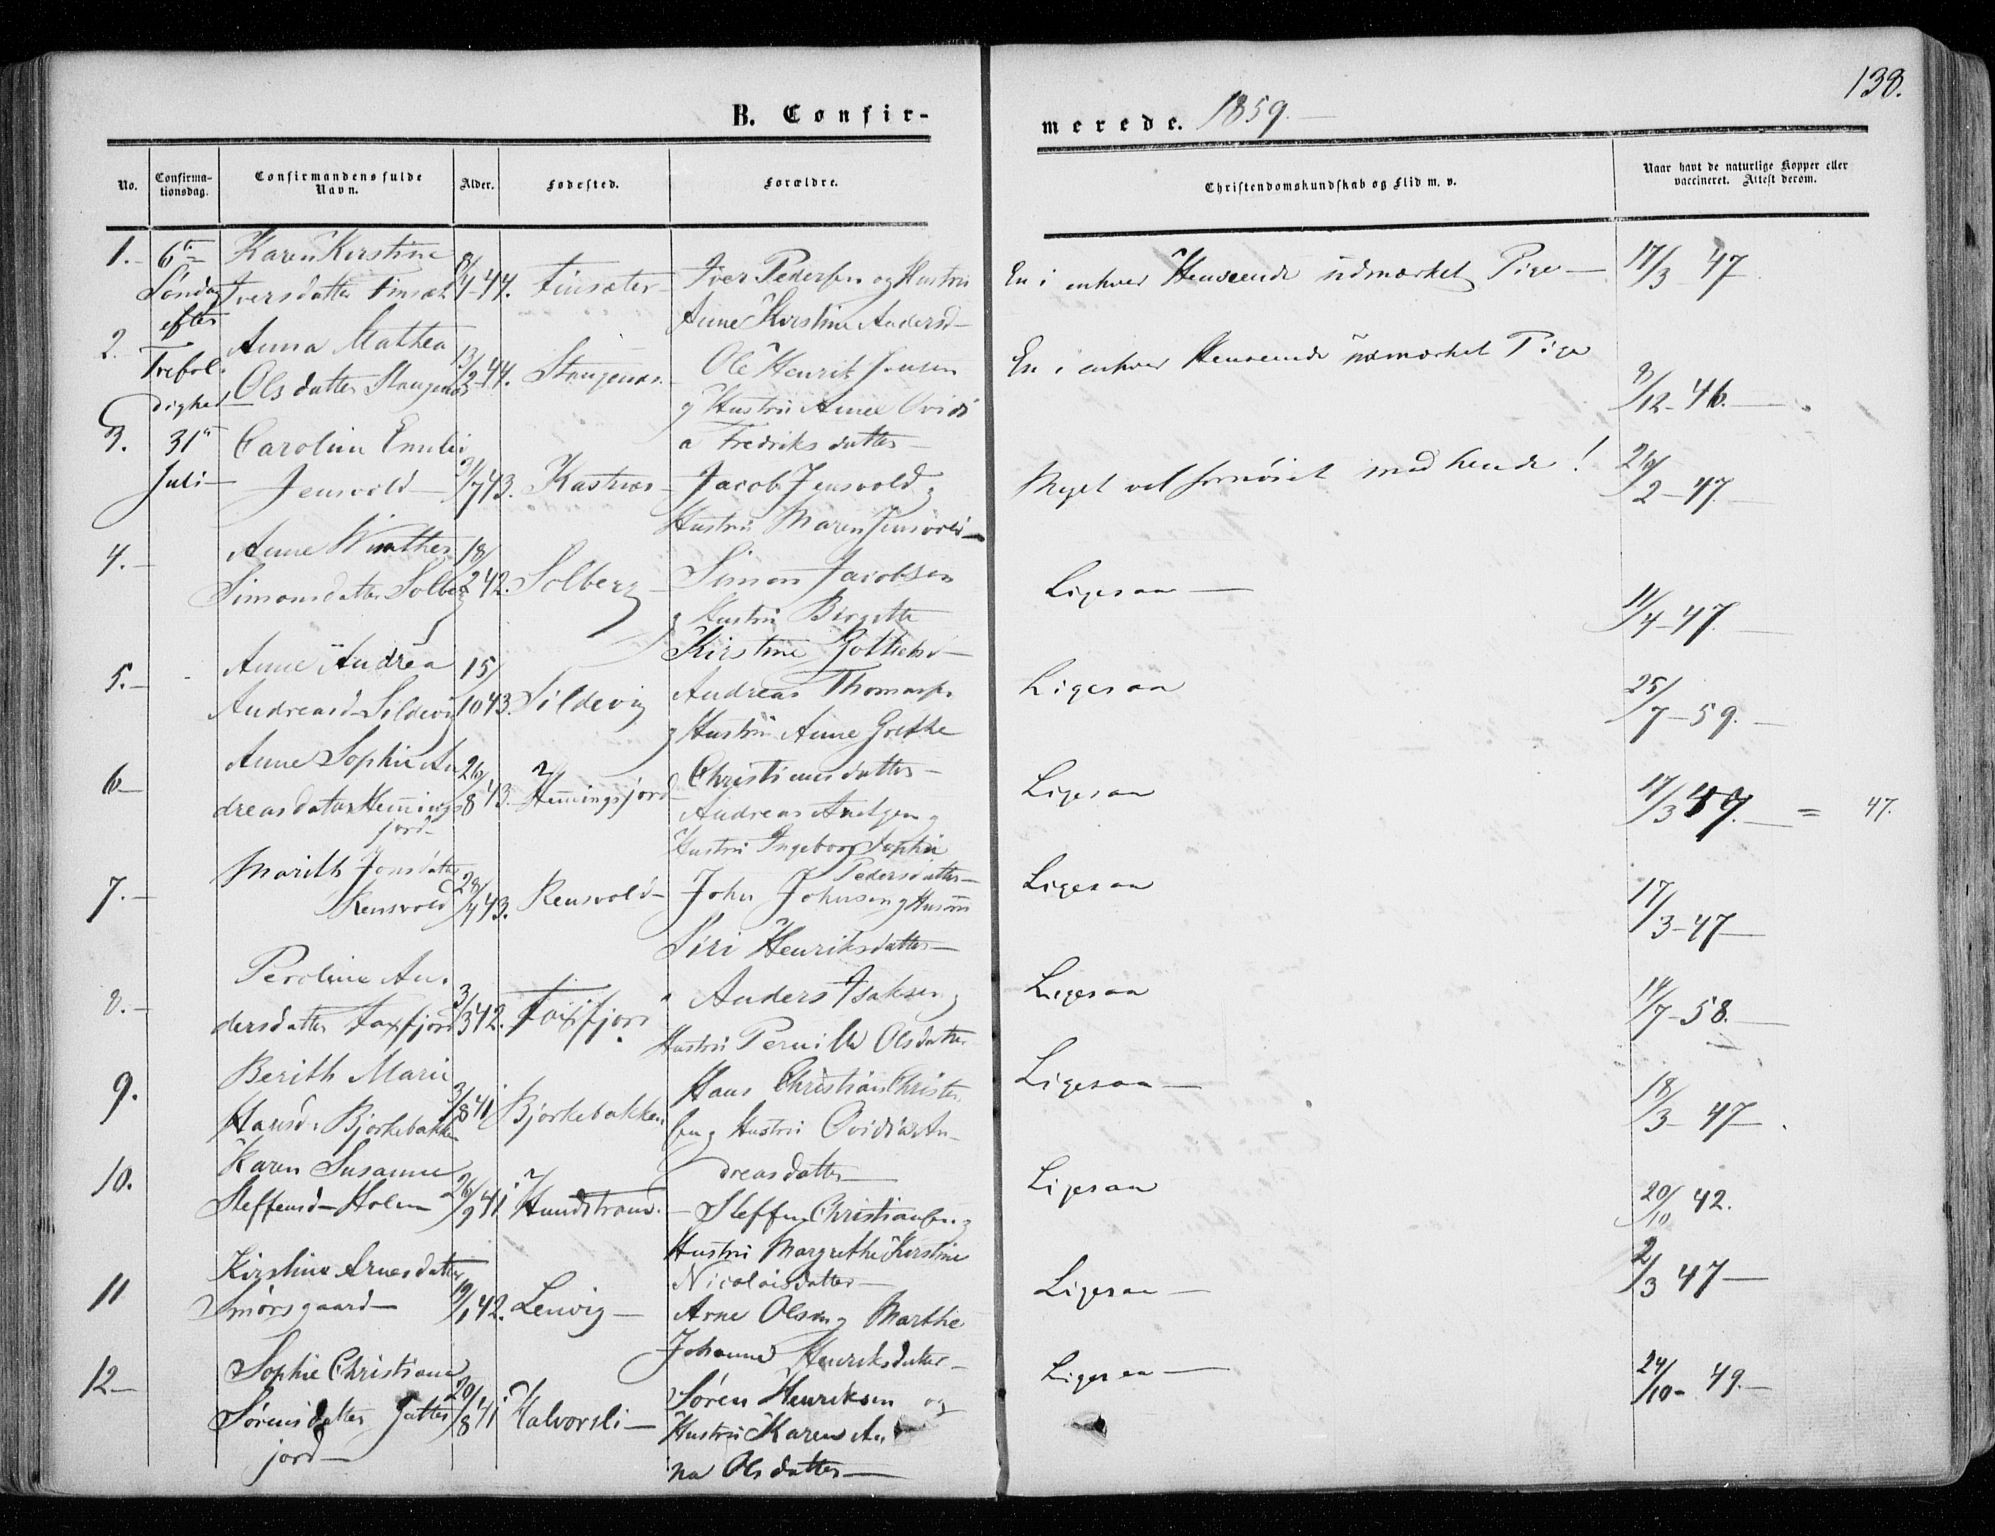 138.
B. Confir-
merede. 1859.
No.
Confirma-
tionsdag.
Confirmandens fulde
Navn.
Alder.
Fødested.
Forældre.
Christendomskundskab og Flid m. v.
Naar havt de naturlige Kopper eller
vaccineret. Attest derom.
6te
Søndag
efter
Trefol-
dighed
31te
Juli
1. Karen Kirstine 8/4 44. Finsæter Iver Pedersen og Hustru En i enhver Henseende udmærket Pige 17/3 47
Iversdatter Finsæt
Anne Kirstine Andersd
2. Anna Mathea 13/2 44. Stangenæs Ole Henrik Jensen En i enhver Henseende udmærket Pige 9/12 46.
Olsdatter Stangenæs
g Hustru Anne Ovidi
a Fredriksdatter
3. Caroline Emilie /7 43. Kastnæs Jacob Jensvold g Meget vel fornøiet med hende! 26/2 47.
Jensvold
Hustru Maren Jensvold
4. Anne 18/2 42. Solberg Simon Jacobsen Ligesaa 11/4 47.
Simonsdatter Solberg
g Hustru Birgitte
Kirstine Gottliebsd
5. Anne Andrea 15/10 43. Sildevig Andreas Thomas Ligesaa 25/7 59.
Andreasd Sildevig
g Hustru Anne Grethe
Christiansdatter
6 Anne Sophie An 26/8 43. Hemmingsjord Andreas g Ligesaa 17/3 = 47.
dreasdatter Hemmings
jord
Hustru Ingeborg Sophie
Pedersdatter
7. Marith Jonsdatter 28/4 43. Rensvold John Johnsen g Hustru Ligesaa 17/3 47
Rensvold
Siri Henriksdatter
8. Peroline An- 3/3 42. Faxfjord Anders Isaksen g Ligesaa 19/7 58.
dersdatter Faxfjord
Hustru Pernille Olsdatter
9. Berith Marie 3/8 41 Bjørkebakken Hans Christian Christen Ligesaa 18/3 47
Hansd. Bjørkebakken
sen g Hustru Ovidia An-
dreasdatter
10. Karen Susanne 26/9 41. Hundstrand. Steffen Christiansen g Ligesaa 20/10 42.
Steffensd Holm
Hustru Margrethe Kirstine
Nicolaisdatter
11 Kirstine Arnesdatter 19/1 42. Lenvig Arne Olsen g Marthe Ligesaa 2/3 47
Smørsgaard
Johanne Henriksdatter
12 Sophie Christiane 20/8 41 Halvorsli Søren Henriksen og Ligesaa 24/10 49.
Sørensdatter
jord
Hustru Karen An
na Olsdatter